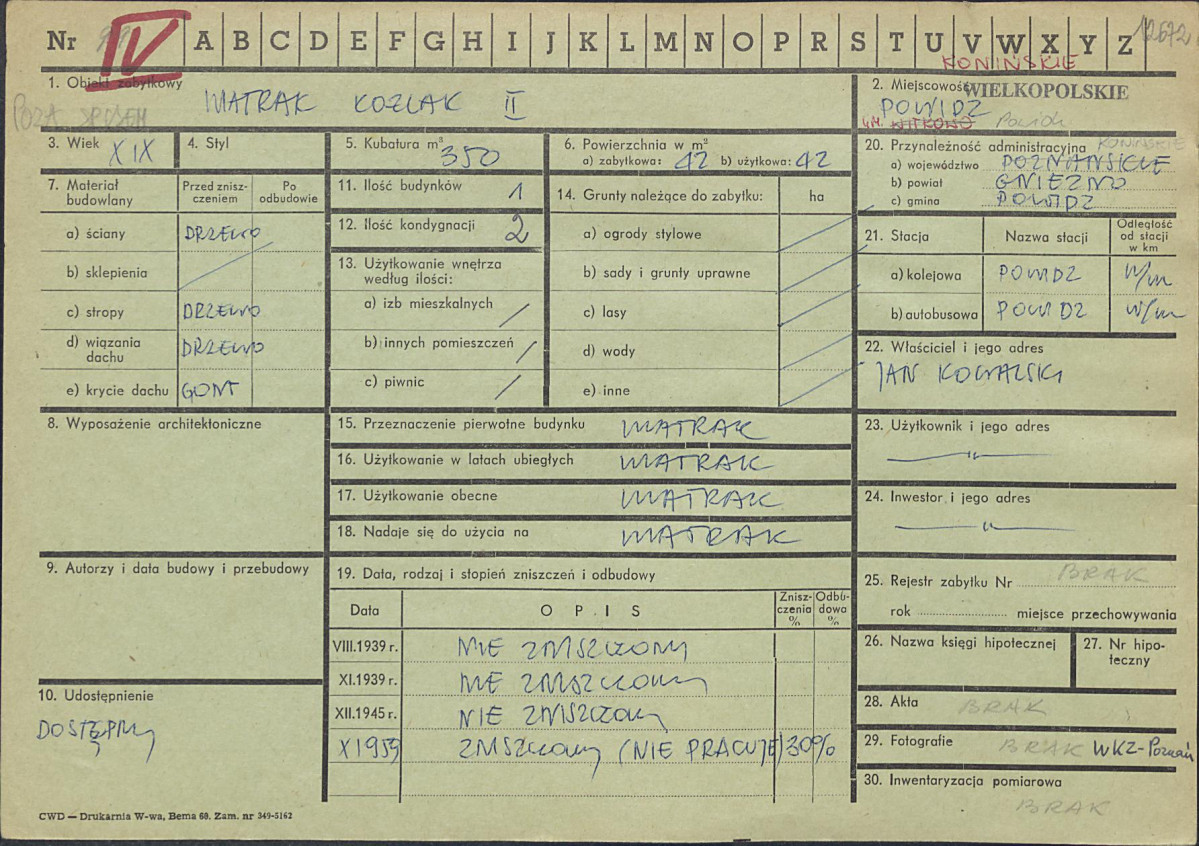 Nr IV A B C D E F G H I J K L M N O P R S T U V W X Y Z 12672
1. Obiekt zabytkowy
WIATRAK KOZLAK II
POZA SPISEM
2. Miejscowość
KONIŃSKIE
WIELKOPOLSKIE
POWIDZ
GM. WITKOWO Powidz
3. Wiek XIX
4. Styl
5. Kubatura m³ 350
6. Powierzchnia w m²
a) zabytkowa: 42 b) użytkowa: 42
7. Materiał budowlany
Przed zniszczeniem
Po odbudowie
a) ściany DRZEWO
b) sklepienia
c) stropy DRZEWO
d) wiązania dachu DRZEWO
e) krycie dachu GONT
8. Wyposażenie architektoniczne
9. Autorzy i data budowy i przebudowy
10. Udostępnienie
DOSTĘPNY
11. Ilość budynków 1
12. Ilość kondygnacji 2
13. Użytkowanie wnętrza według ilości:
a) izb mieszkalnych
b) innych pomieszczeń
c) piwnic
14. Grunty należące do zabytku: ha
a) ogrody stylowe
b) sady i grunty uprawne
c) lasy
d) wody
e) inne
15. Przeznaczenie pierwotne budynku WIATRAK
16. Użytkowanie w latach ubiegłych WIATRAK
17. Użytkowanie obecne WIATRAK
18. Nadaje się do użycia na WIATRAK
19. Data, rodzaj i stopień zniszczeń i odbudowy
Data OPIS Zniszczenia % Odbudowa %
VIII.1939 r. NIE ZNISZCZONY
XI.1939 r. NIE ZNISZCZONY
XII.1945 r. NIE ZNISZCZONY
X 1959 ZNISZCZONY (NIE PRACUJE) 30%
20. Przynależność administracyjna KONIŃSKIE
a) województwo POZNAŃSKIE
b) powiat GNIEZNO
c) gmina POWIDZ
21. Stacja Nazwa stacji Odległość od stacji w km
a) kolejowa POWIDZ w/m
b) autobusowa POWIDZ w/m
22. Właściciel i jego adres
JAN KOWALSKI
23. Użytkownik i jego adres
—"—
24. Inwestor i jego adres
—"—
25. Rejestr zabytku Nr BRAK
rok miejsce przechowywania
26. Nazwa księgi hipotecznej
27. Nr hipoteczny
28. Akta BRAK
29. Fotografie BRAK WKZ-Poznań
30. Inwentaryzacja pomiarowa
BRAK
CWD — Drukarnia W-wa, Bema 60. Zam. nr 349-5162